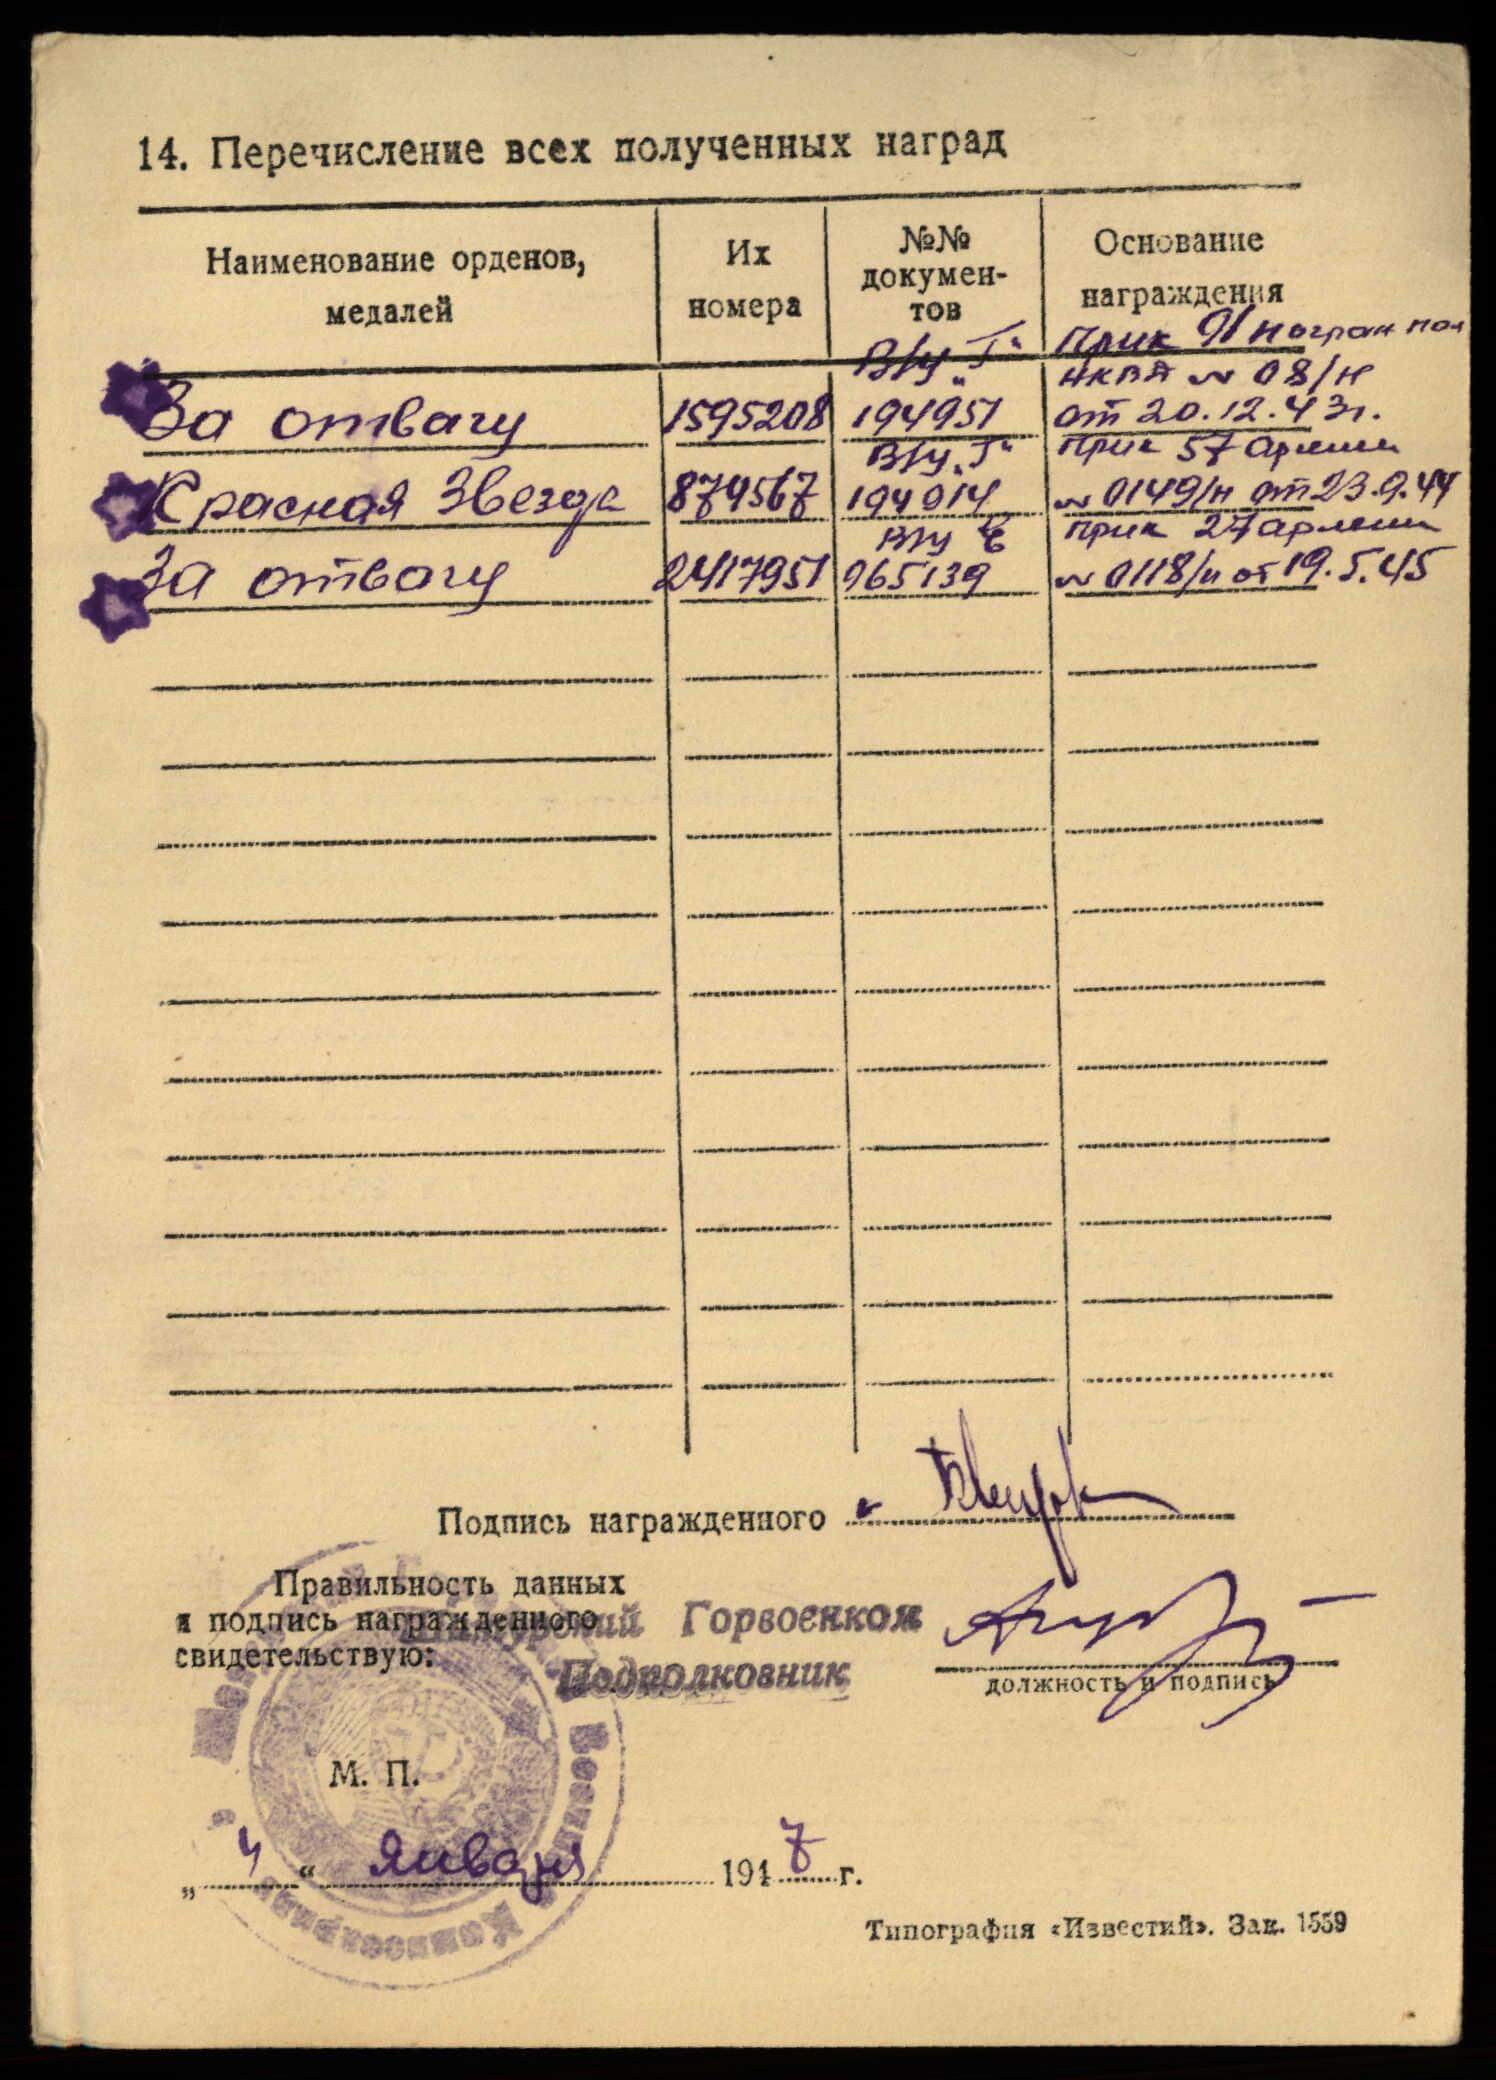 14. Перечисление всех полученных наград
Наименование орденов, медалей
Их номера
№№ докумен-
тов
Основание награждения
В/у „Г“
Прик 91 погран пол
НКВД № 08/н
За отвагу 1595208 194951 от 20.12.43г.
В/у „Г“ Прик 57 армии
Красная Звезда 879567 194914 № 0149/н от 23.9.44
В/у Е Прик 27 армии
За отвагу 2417951 965139 № 0118/н от 19.5.45
Подпись награжденного
Правильность данных
и подпись награжденного
свидетельствую:
Горвоенком
Подполковник
должность и подпись
М. П.
„ 4 “ января 1947 г.
Типография «Известий». Зак. 1559